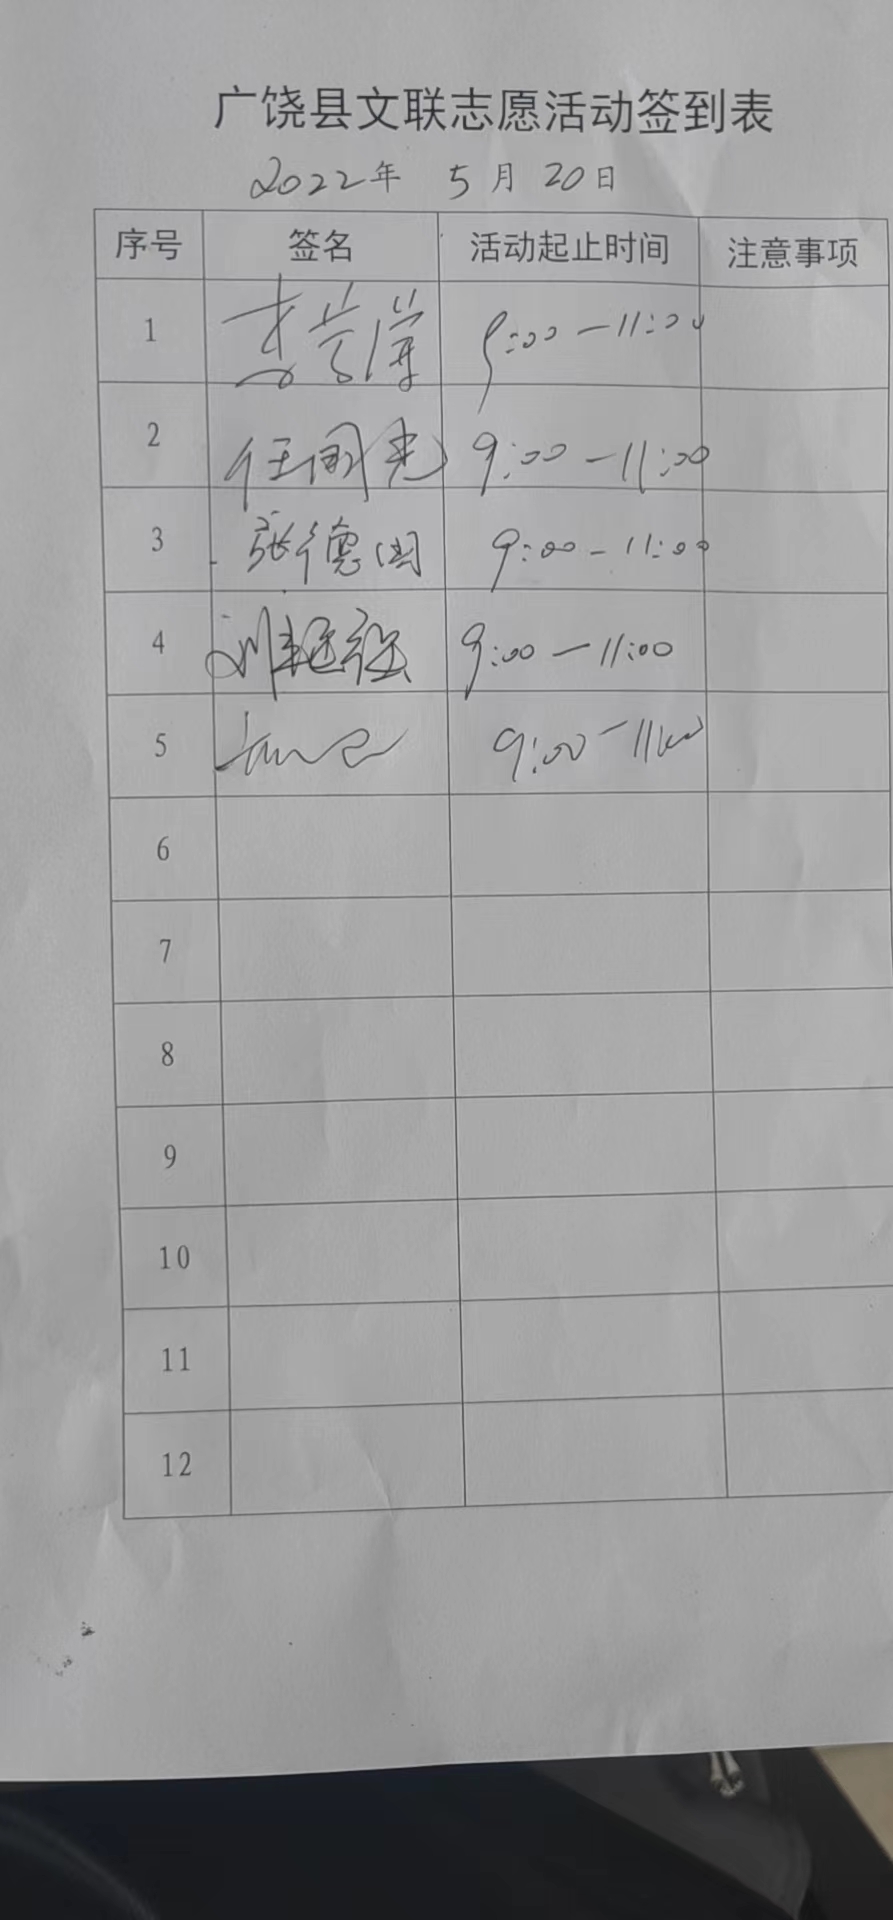 广饶县文联志愿活动签到表
2022年 5月20日
序号 签名 活动起止时间 注意事项
1 9:00-11:00
2 任国光 9:00-11:00
3 张德国 9:00-11:00
4 9:00-11:00
5 9:00-11:00
6
7
8
9
10
11
12